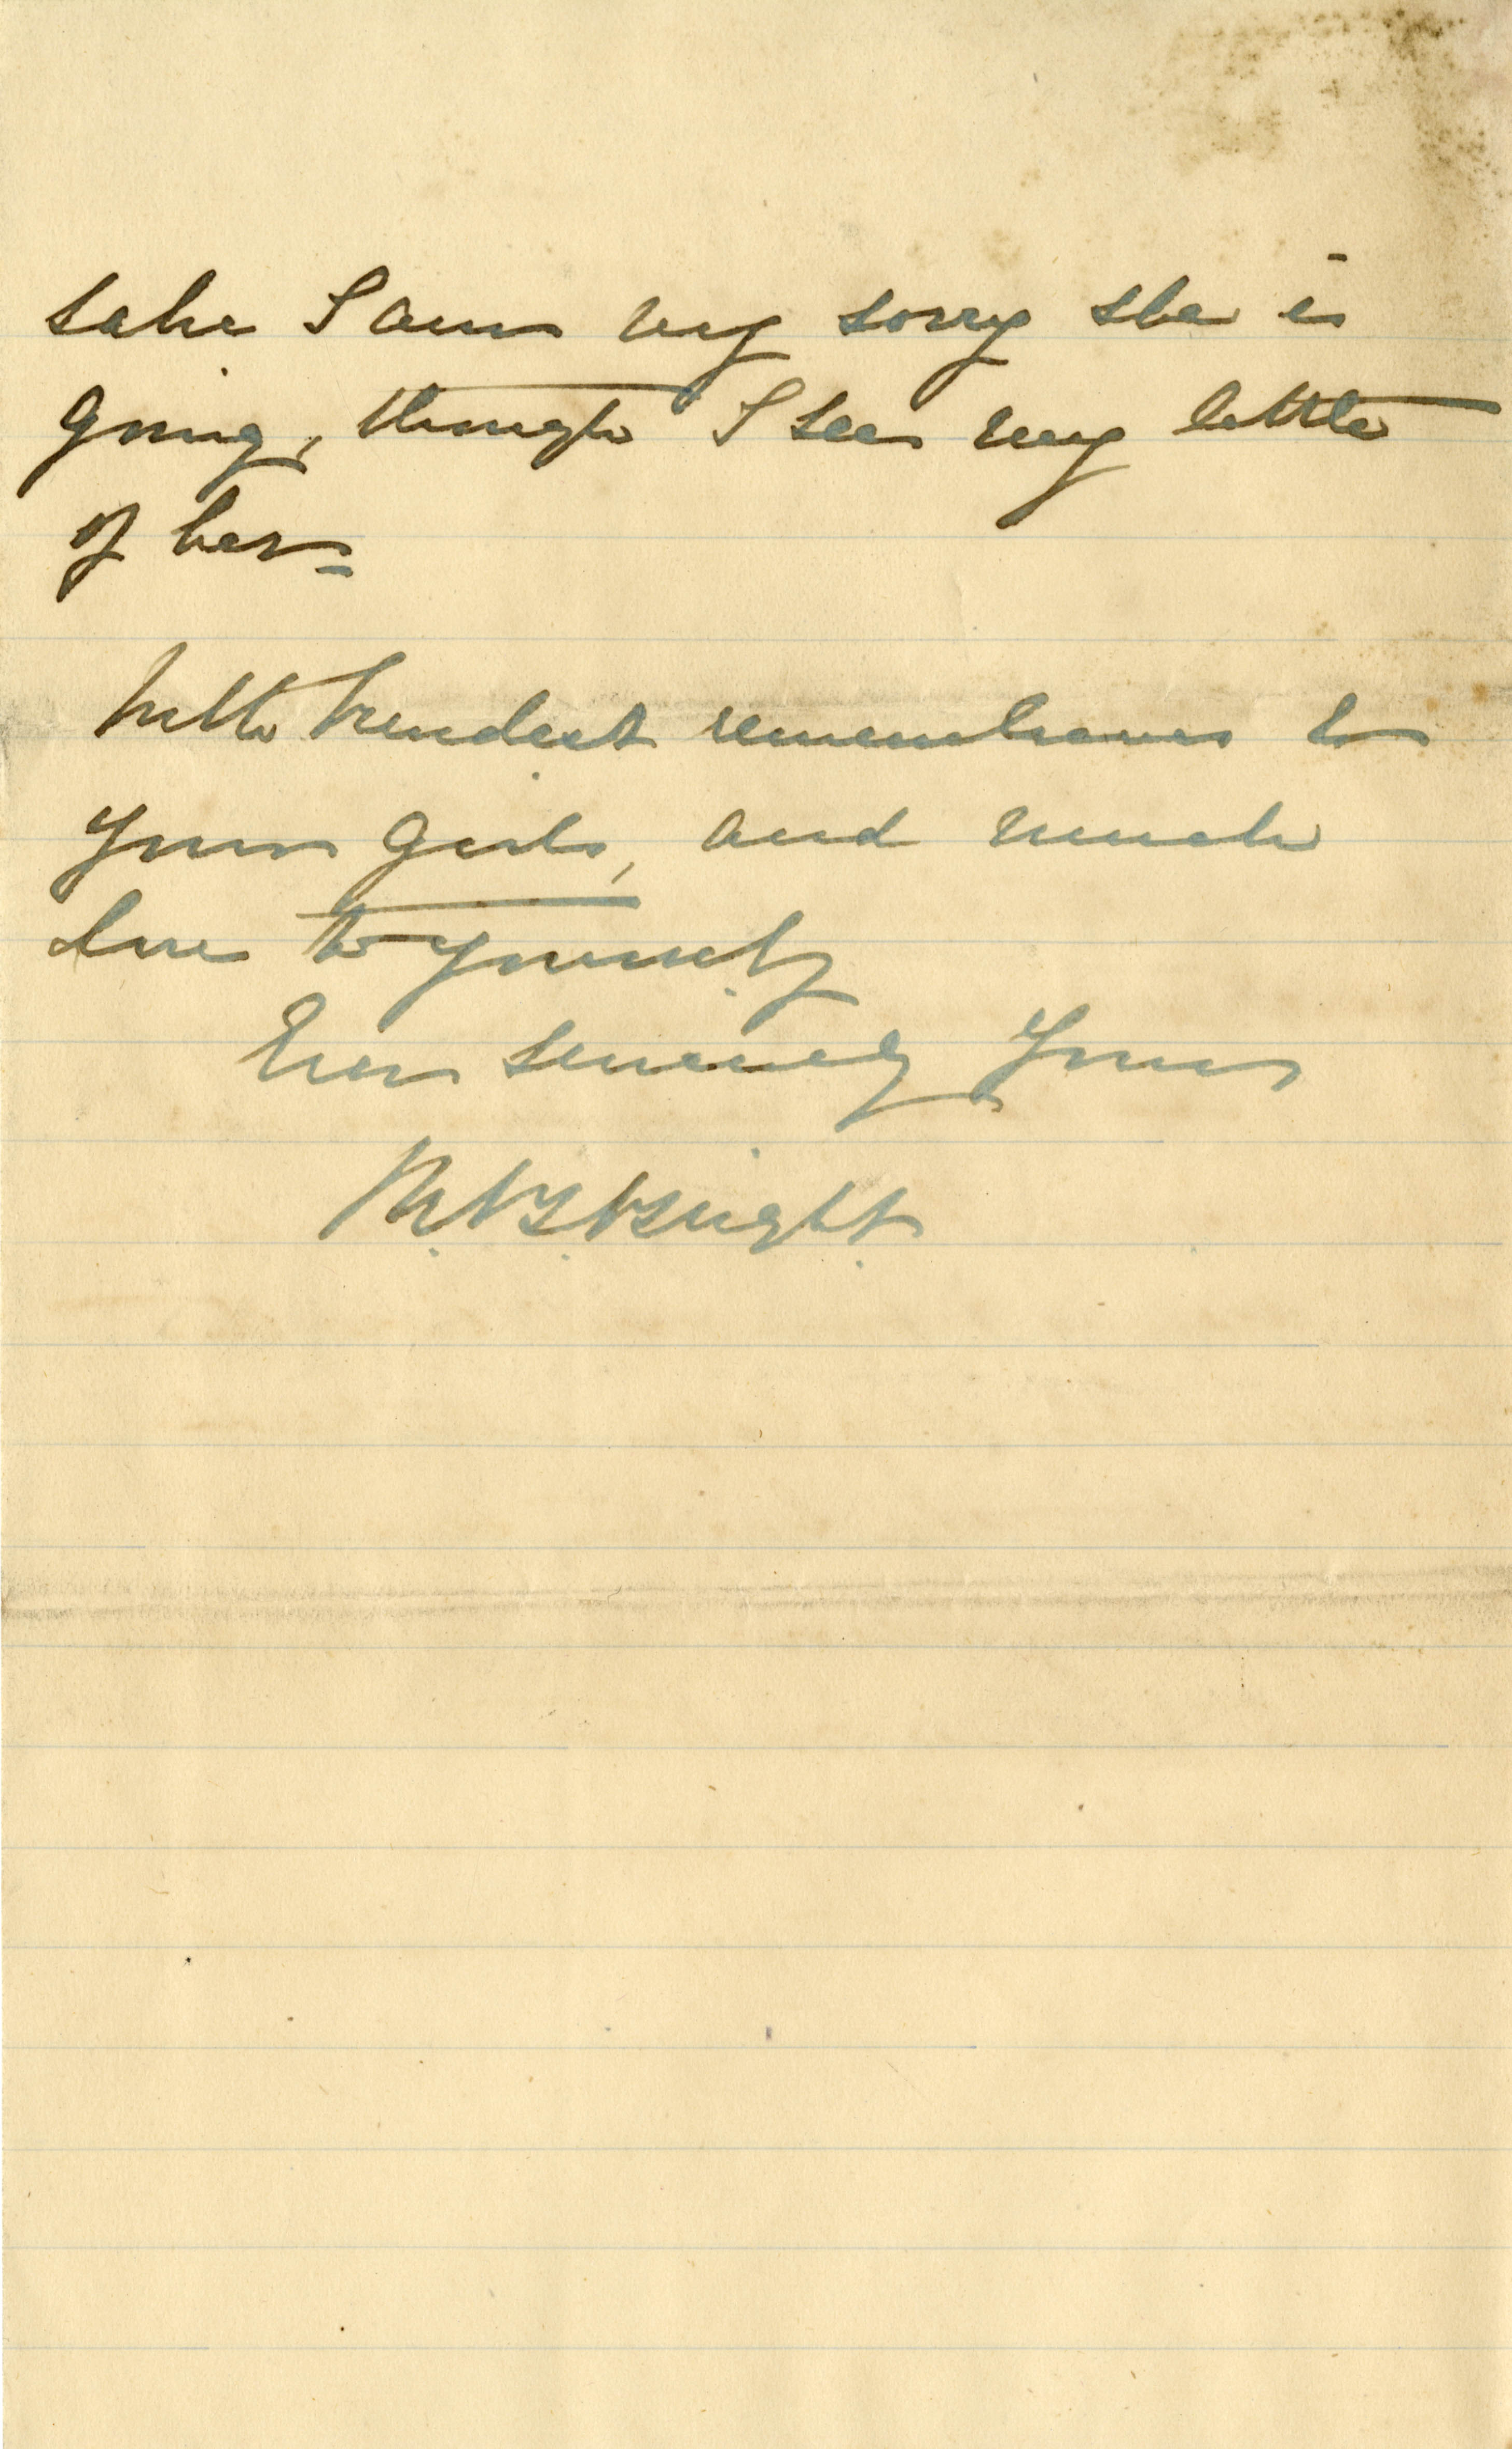 sake I am very sorry she is
going, though I see very little
of her —
With kindest remembrances to
your girls, and much
love to yourself
Ever sincerely Yours
Knight